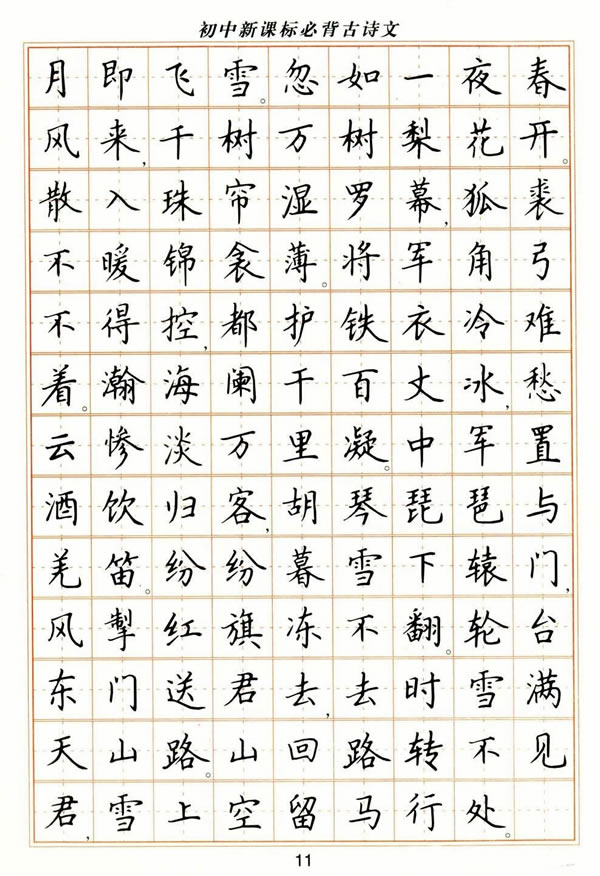 初中新课标必背古诗文
月即飞雪。忽如一夜春
风来,千树万树梨花开。
散入珠帘湿罗幕,狐裘
不暖锦衾薄。将军角弓
不得控,都护铁衣冷难
着。瀚海阑干百丈冰,愁
云惨淡万里凝。中军置
酒饮归客,胡琴琵琶与
羌笛。纷纷暮雪下辕门,
风掣红旗冻不翻。轮台
东门送君去,去时雪满
天山路。山回路转不见
君,雪上空留马行处。
11